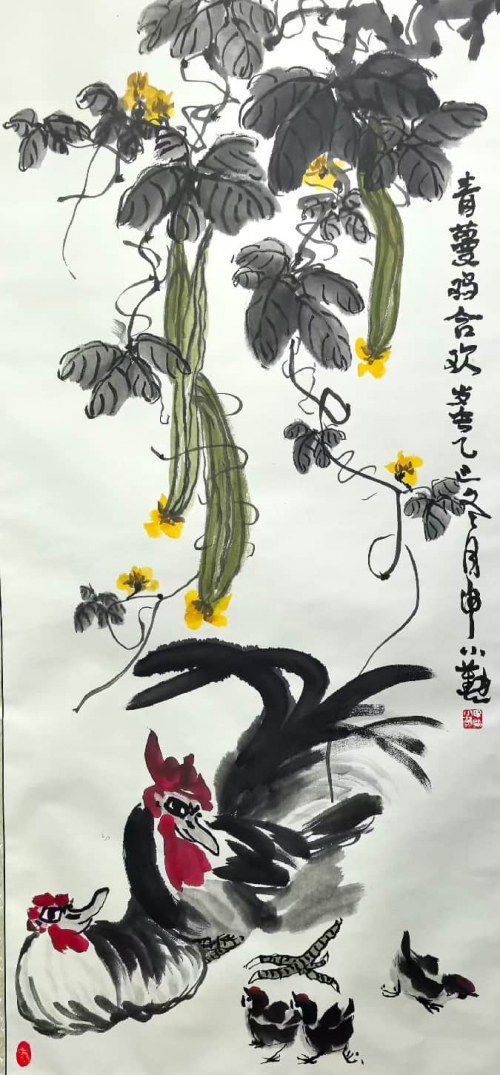 青蔓鸡合欢 岁在乙巳冬月申小勤